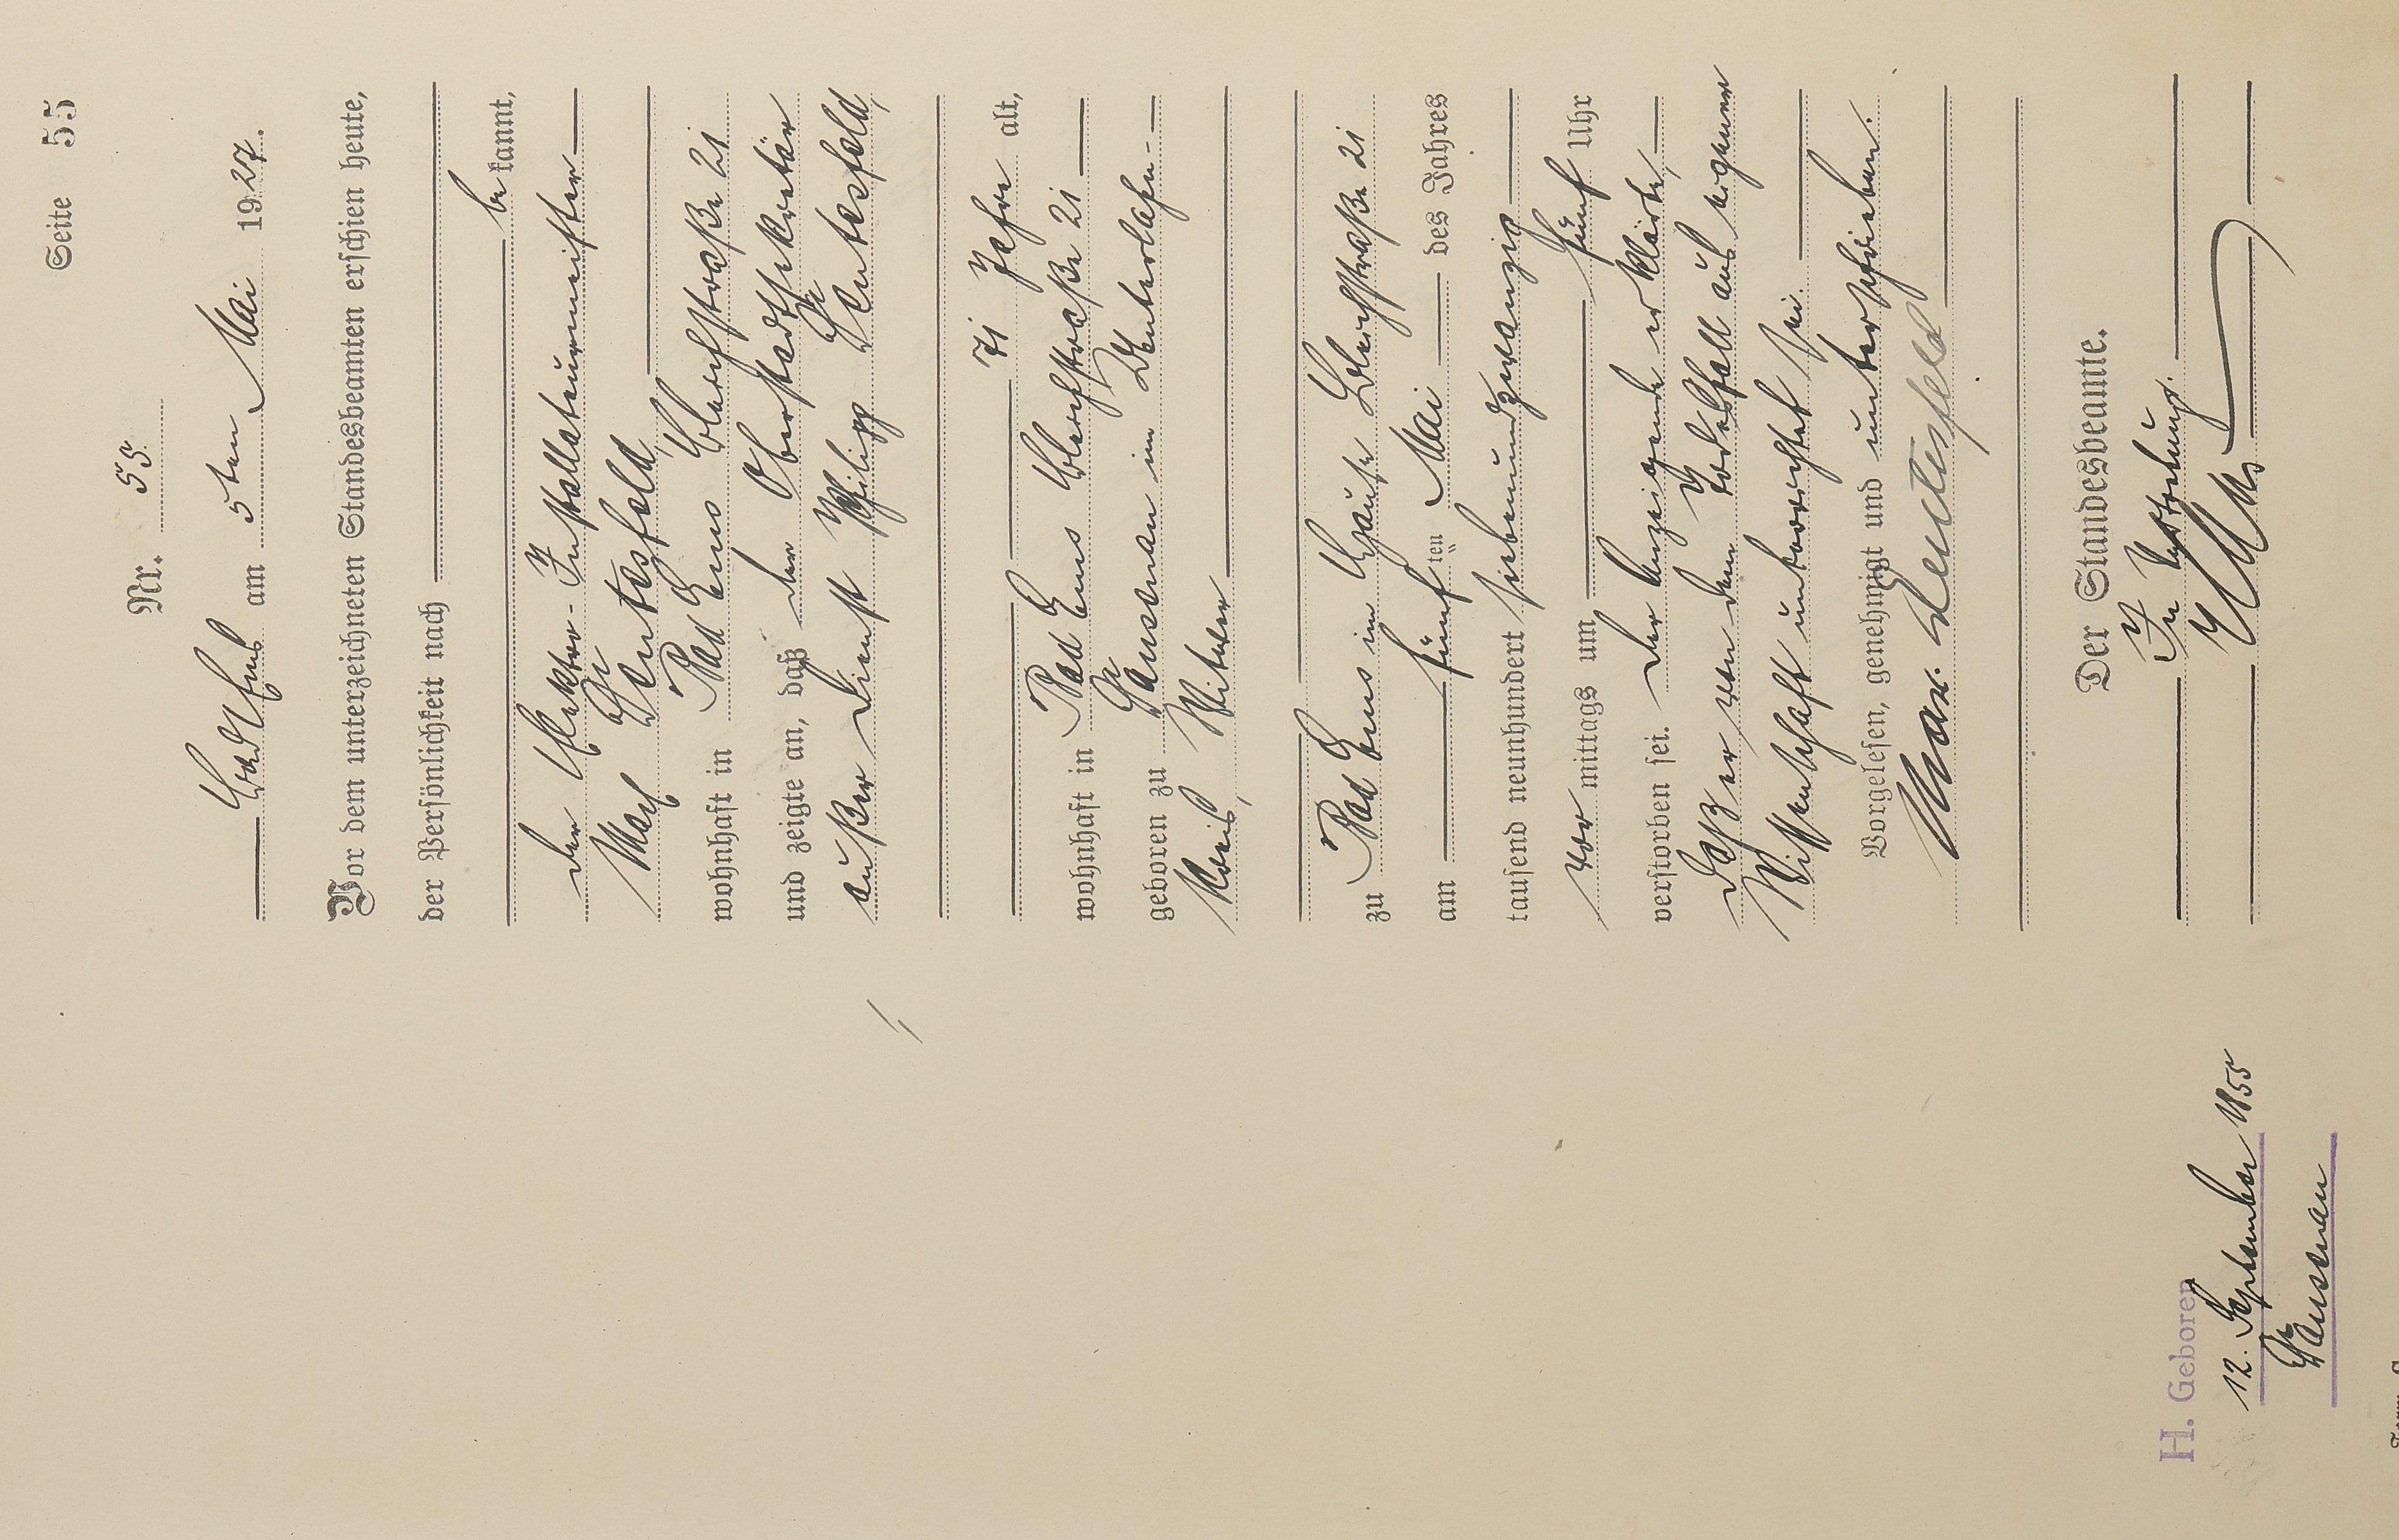 Seite 55
Nr. 55.
Bad Ems am 5ten Mai 1927.
Vor dem unterzeichneten Standesbeamten erschien heute,
der Persönlichkeit nach
be kannt,
der Elektro-Installateurmeister
Max Leutesfeld,
wohnhaft in Bad Ems Bleichstraße 21
und zeigte an, daß der Oberstadtsekretär
außer Dienst Philipp Leutesfeld,
71 Jahre alt,
wohnhaft in Bad Ems Bleichstraße 21
geboren zu Hausenau im Unterlahn-
kreis, Witwer
zu Bad Ems im Hause Bleichstraße 21
am fünf ten Mai des Jahres
tausend neunhundert siebenundzwanzig
vor mittags um fünf Uhr
verstorben sei. Der Anzeigende erklärte,
daß er von dem Todesfall aus eigener
Wissenschaft unterrichtet sei.
Vorgelesen, genehmigt und unterschrieben.
Max Leutesfeld
Der Standesbeamte.
In Vertretung.
H. Geboren
12. September 1855